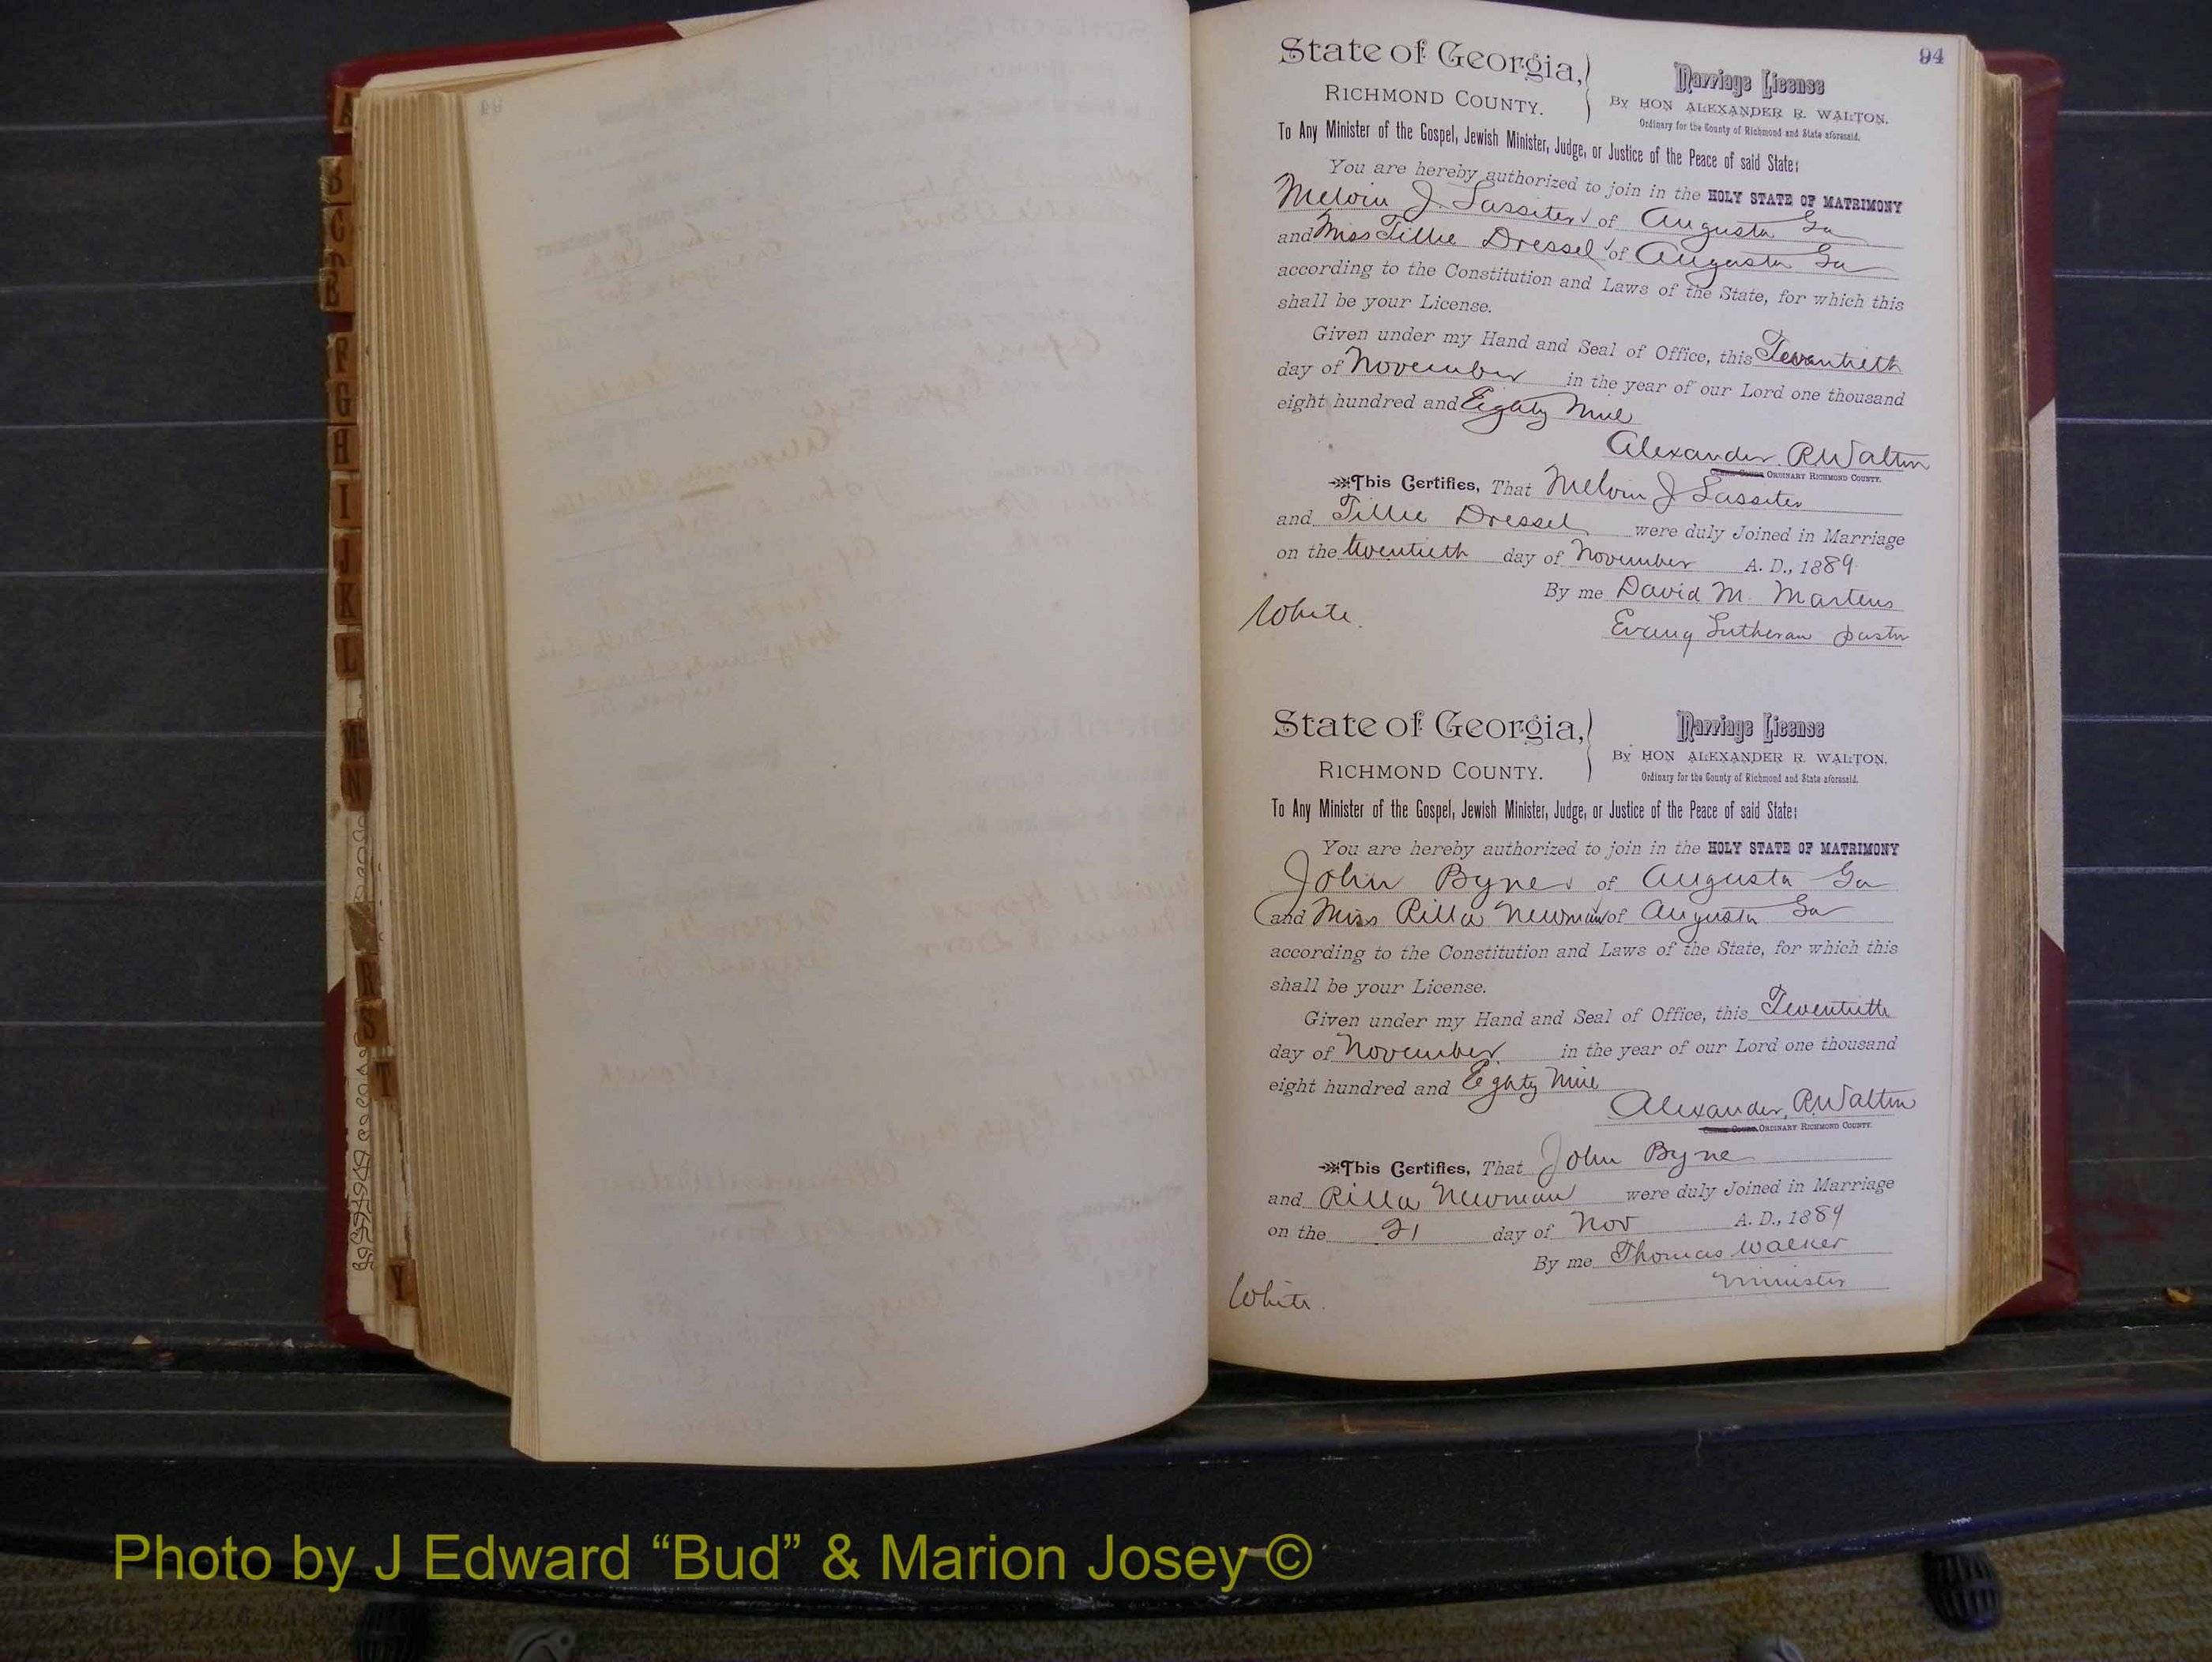 94
State of Georgia,
RICHMOND COUNTY.
Marriage License
By HON ALEXANDER R. WALTON,
Ordinary for the County of Richmond and State aforesaid.
To Any Minister of the Gospel, Jewish Minister, Judge, or Justice of the Peace of said State:
You are hereby authorized to join in the HOLY STATE OF MATRIMONY
Melvin J. Lassiter of Augusta Ga
and Miss Tillie Dressel of Augusta Ga
according to the Constitution and Laws of the State, for which this
shall be your License.
Given under my Hand and Seal of Office, this Twentieth
day of November in the year of our Lord one thousand
eight hundred and Eighty Nine
Alexander R Walton
ORDINARY RICHMOND COUNTY.
This Certifies, That Melvin J Lassiter
and Tillie Dressel were duly Joined in Marriage
on the twentieth day of November A. D., 1889
By me David M. Martens
White.
Evang Lutheran pastor
State of Georgia,
RICHMOND COUNTY.
Marriage License
By HON ALEXANDER R. WALTON,
Ordinary for the County of Richmond and State aforesaid.
To Any Minister of the Gospel, Jewish Minister, Judge, or Justice of the Peace of said State:
You are hereby authorized to join in the HOLY STATE OF MATRIMONY
John Byne of Augusta Ga
and Miss Rilla Newman of Augusta Ga
according to the Constitution and Laws of the State, for which this
shall be your License.
Given under my Hand and Seal of Office, this Twentieth
day of November in the year of our Lord one thousand
eight hundred and Eighty Nine
Alexander R Walton
ORDINARY RICHMOND COUNTY.
This Certifies, That John Byne
and Rilla Newman were duly Joined in Marriage
on the 21 day of Nov A. D., 1889
By me Thomas Walker
minister
White.
A
B
C
F
G
H
I
J
K
L
Mc
N
R
S
T
Y
Photo by J Edward “Bud” & Marion Josey ©